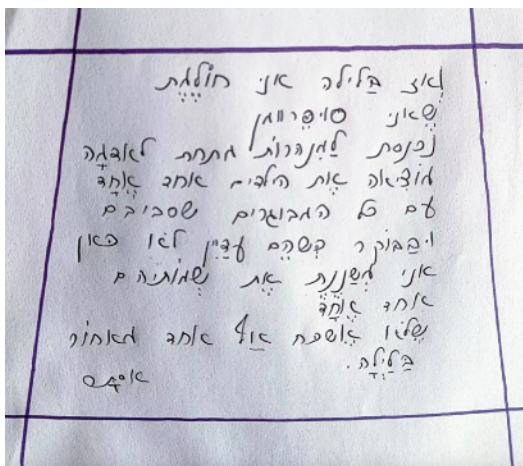 ואז בַּלילה אני חוֹלֶמֶת
שֶׁאני סוּפֶּרווּמן
נִכנסת לַמִנהרוֹת מתחת לאדמָה
מוֹצִיאה אֶת הילדים אחד אֶחָד
עם כל המבוגרים שסביבם
ויבַבּוֹקר כְּשֶהֵם עדַיין לֹאו כּאן
אני מְשַנֶנֶת אֶת שְמוֹתיהם
אחד אֶחָד
שֶלֹאו אֶשכּח אַף אחד מאחוֹר
בַּלַילָה.